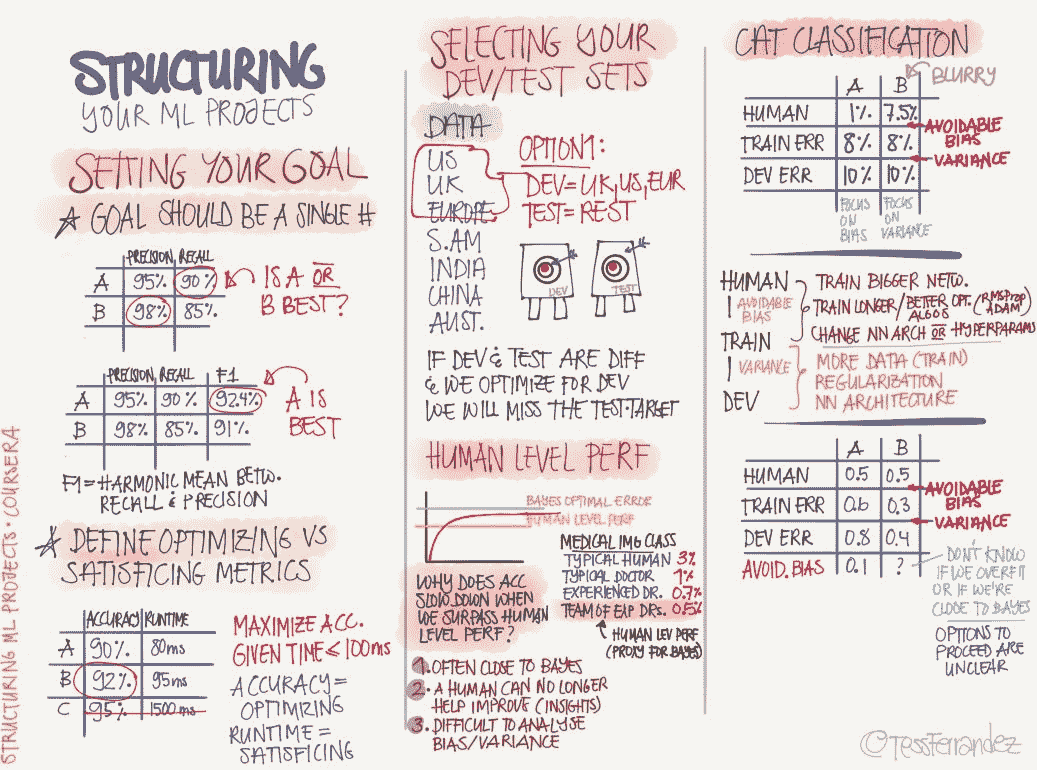 STRUCTURING
YOUR ML PROJECTS
SETTING YOUR GOAL
☆ GOAL SHOULD BE A SINGLE #
PRECISION RECALL
A 95% 90%
B 98% 85%
IS A OR
B BEST?
PRECISION RECALL F1
A 95% 90% 92.4%
B 98% 85% 91%
A IS
BEST
F1 = HARMONIC MEAN BETW.
RECALL & PRECISION
☆ DEFINE OPTIMIZING VS
SATISFICING METRICS
ACCURACY RUNTIME
A 90% 80ms
B 92% 95ms
C 95% 1500ms
MAXIMIZE ACC.
GIVEN TIME ≤ 100MS
ACCURACY =
OPTIMIZING
RUNTIME =
SATISFICING
STRUCTURING ML PROJECTS · COURSERA
SELECTING YOUR
DEV/TEST SETS
DATA
US
UK
EUROPE
S.AM
INDIA
CHINA
AUST.
OPTION1:
DEV=UK,US,EUR
TEST=REST
DEV
TEST
IF DEV & TEST ARE DIFF
& WE OPTIMIZE FOR DEV
WE WILL MISS THE TEST-TARGET
HUMAN LEVEL PERF
BAYES OPTIMAL ERROR
HUMAN LEVEL PERF
MEDICAL IMG CLASS
TYPICAL HUMAN 3%
TYPICAL DOCTOR 1%
EXPERIENCED DR. 0.7%
TEAM OF EXP DRS. 0.5%
HUMAN LEV PERF
(PROXY FOR BAYES)
WHY DOES ACC
SLOW DOWN WHEN
WE SURPASS HUMAN
LEVEL PERF?
1. OFTEN CLOSE TO BAYES
2. A HUMAN CAN NO LONGER
HELP IMPROVE (INSIGHTS)
3. DIFFICULT TO ANALYSE
BIAS/VARIANCE
CAT CLASSIFICATION
BLURRY
A B
HUMAN 1% 7.5%
AVOIDABLE
BIAS
TRAIN ERR 8% 8%
VARIANCE
DEV ERR 10% 10%
FOCUS
ON
BIAS
FOCUS
ON
VARIANCE
HUMAN
AVOIDABLE
BIAS
TRAIN
VARIANCE
DEV
TRAIN BIGGER NETW.
TRAIN LONGER/BETTER OPT. ALGOS (RMSProp ADAM)
CHANGE NN ARCH OR HYPERPARAMS
MORE DATA (TRAIN)
REGULARIZATION
NN ARCHITECTURE
A B
HUMAN 0.5 0.5
AVOIDABLE
BIAS
TRAIN ERR 0.6 0.3
VARIANCE
DEV ERR 0.8 0.4
AVOID. BIAS 0.1 ?
DON'T KNOW
IF WE OVERFIT
OR IF WE'RE
CLOSE TO BAYES
OPTIONS TO
PROCEED ARE
UNCLEAR
©TessFerrandez